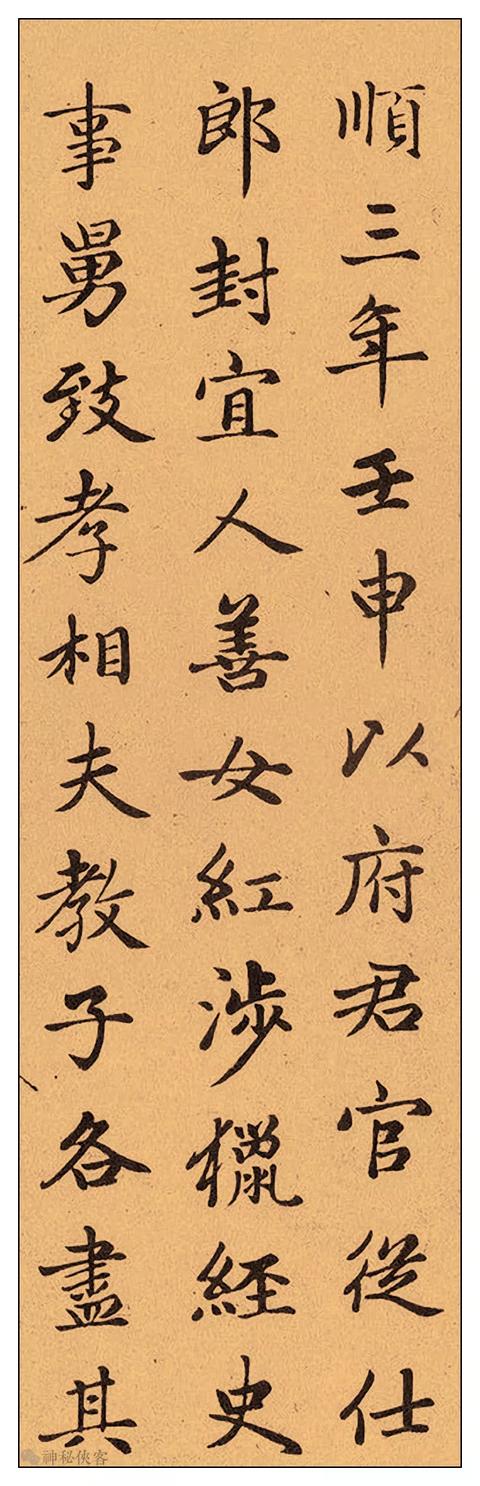 順三年壬申以府君官從仕
郎封宜人善女紅涉獵經史
事舅致孝相夫教子各盡其
神秘侠客